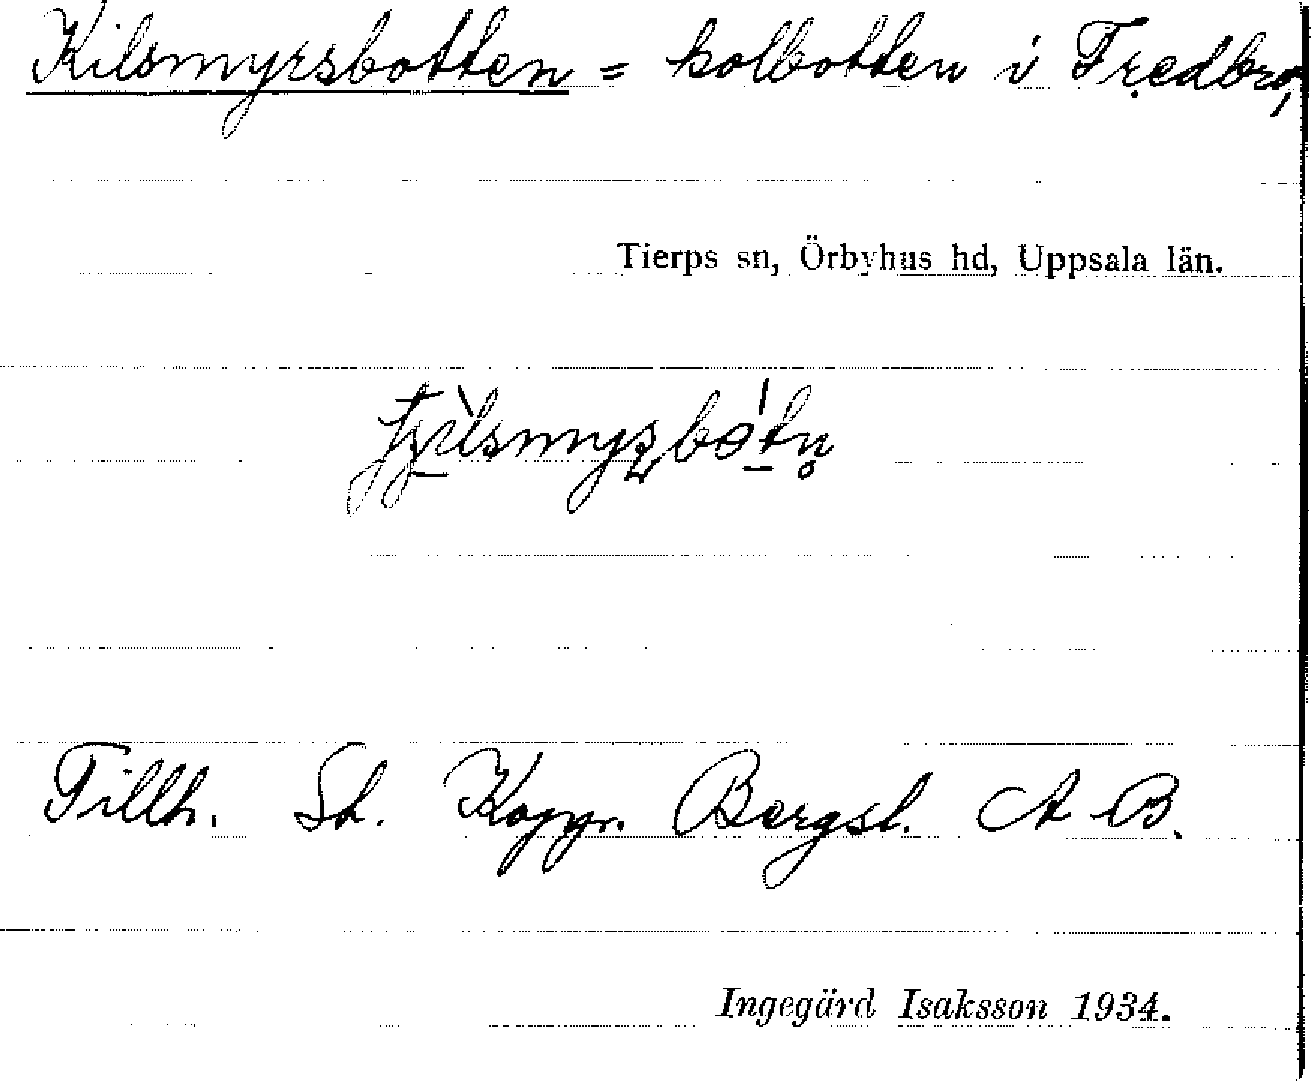 Kilsmyrsbotten = kolbotten i Fredbro,
Tierps sn, Örbyhus hd, Uppsala län.
Tillh. St. Koppr. Bergsl. A B.
Ingegärd Isaksson 1934.